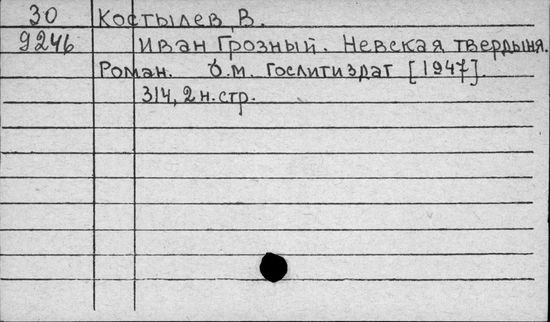 30 Костылев, В.
9246 Иван Грозный. Невская твердыня.
Роман. б.м. Гослитиздат [1947].
314, 2 н. стр.